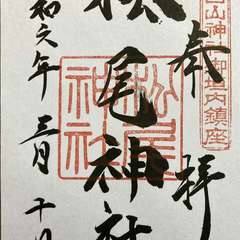 奉拝
白山神社御垣内鎮座
松尾神社
松尾神社
和六年三月十日